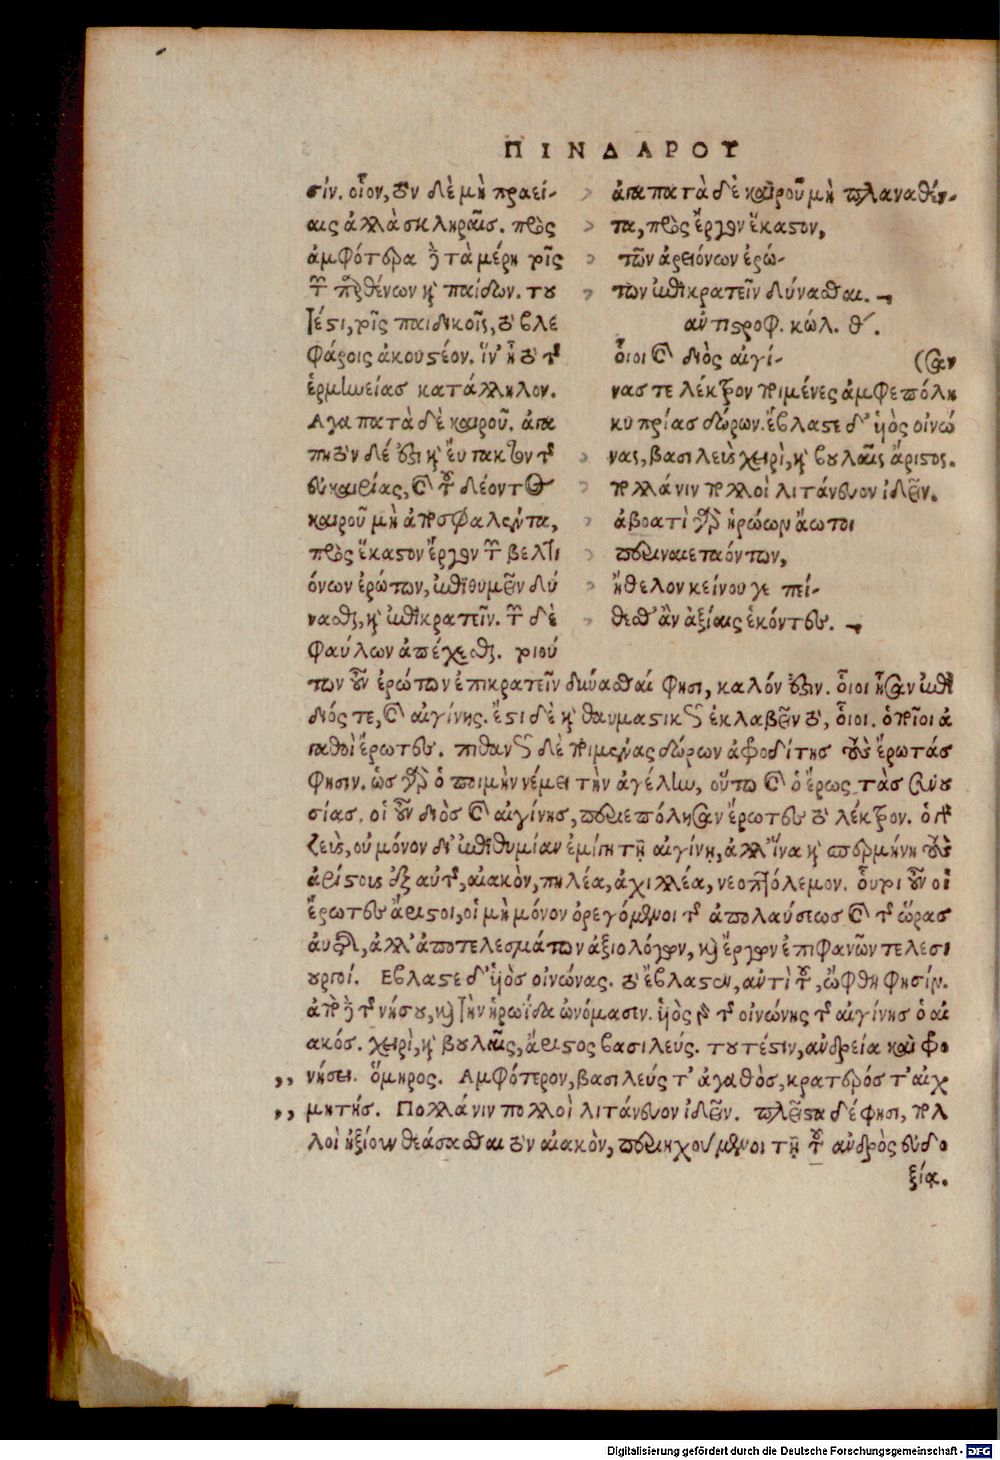 ΠΙΝΔΑΡΟΥ
σίν. οἷον, τὸν δὲ μὴ πραεί-
αις ἀλλὰ σκληραῖς. πρὸς
ἀμφότερα γὰρ τὰ μέρη τοῖς
τῶν παρθένων καὶ παίδων. τοῦ
τέστι, τοῖς παιδικοῖς, τὸ βλε
φάροις ἀκουστέον. ἵν' ᾖ τὸ τῆς
ἑρμηνείας κατάλληλον.
Αγαπατὰ δὲ καιροῦ. ἀγα
πητὸν δέ ἐστι καὶ εὐπακτον τῆς
εὐκαιρίας, καὶ τοῦ δέοντος
καιροῦ μὴ ἀποσφαλέντα,
πρὸς ἕκαστον ἔργον τῶν βελτι
όνων ἐρώτων, ἐπιθυμεῖν δύ
νασθαι, καὶ ἐπικρατεῖν. τῶν δὲ
φαύλων ἀπέχεσθαι. τοιού
ἀγαπατὰ δὲ καιροῦ μὴ πλαναθέν-
τα, πρὸς ἔργον ἕκαστον,
τῶν ἀρειόνων ἐρώ-
των ἐπικρατεῖν δύνασθαι.
αντιστροφ. κώλ. θ.
οἷοι καὶ διὸς αἰγί-
(σαν
νας τε λέκτρον ποιμένες ἀμφεπόλη
κυπρίας δώρων. ἔβλαστε δ' υἱὸς οἰνώ
νας, βασιλεὺς χειρὶ, καὶ βουλαῖς ἄριστος.
πολλά νιν πολλοὶ λιτάνευον ἰδεῖν.
ἀβοατὶ γὰρ ἡρώων ἄωτοι
περιναιεταόντων,
ἤθελον κείνου γε πεί-
θεσθ' ἂν ἀξίαις ἑκόντες.
των οὖν ἐρώτων ἐπικρατεῖν δύνασθαί φησι, καλόν ἐστιν. οἷοι ἦσαν ἐπὶ
διός τε, καὶ αἰγίνης. ἔστι δὲ καὶ θαυμαστικῶς ἐκλαβεῖν τὸ, οἷοι. ὁποῖοι ἀ
γαθοὶ ἔρωτες. πιθανῶς δὲ ποιμένας δώρων ἀφροδίτης τοὺς ἔρωτάς
φησιν. ὡς γὰρ ὁ ποιμὴν νέμει τὴν ἀγέλην, οὕτω καὶ ὁ ἔρως τὰς συνου
σίας. οἱ οὖν διὸς καὶ αἰγίνης, περιεπόλησαν ἔρωτες τὸ λέκτρον. ὁ γὰρ
ζεὺς, οὐ μόνον δι' ἐπιθυμίαν ἐμίγη τῇ αἰγίνῃ, ἀλλ' ἵνα καὶ σπερμήνῃ τοὺς
ἀρίστους ἐξ αὐτῆς, αἰακὸν, πηλέα, ἀχιλλέα, νεοπτόλεμον. οὗτοι οὖν οἱ
ἔρωτες ἄριστοι, οἱ μὴ μόνον ὀρεγόμενοι τῆς ἀπολαύσεως καὶ τῆς ὥρας
ἀυτῆς, ἀλλ' ἀποτελεσμάτων ἀξιολόγων, καὶ ἔργων ἐπιφανῶν τελεσι
ουργοί. Εβλαστε δ' υἱὸς οἰνώνας. τὸ ἔβλαστεν, αντὶ τοῦ, ὤφθη φησίν.
ἀπὸ γὰρ τῆς νήσου, καὶ τὴν ἡρωΐδα ὠνόμασιν. υἱὸς δὲ τῆς οἰνώνης τῆς αἰγίνης ὁ αἰ
ακός. χειρὶ, καὶ βουλαῖς, ἄριστος βασιλεύς. τουτέστιν, ανδρεία καὶ φρο
,, νήσει. ὅμηρος. Αμφότερον, βασιλεύς τ' ἀγαθὸς, κρατερός τ' αἰχ
,, μητής. Πολλά νιν πολλοὶ λιτάνευον ἰδεῖν. πλεῖστα δέ φησι, πολ
λοὶ ἠξίουν θεάσασθαι τὸν αἰακὸν, περιηχούμενοι τῇ τοῦ ανδρὸς εὐδο
ξίᾳ.
Digitalisierung gefördert durch die Deutsche Forschungsgemeinschaft - DFG